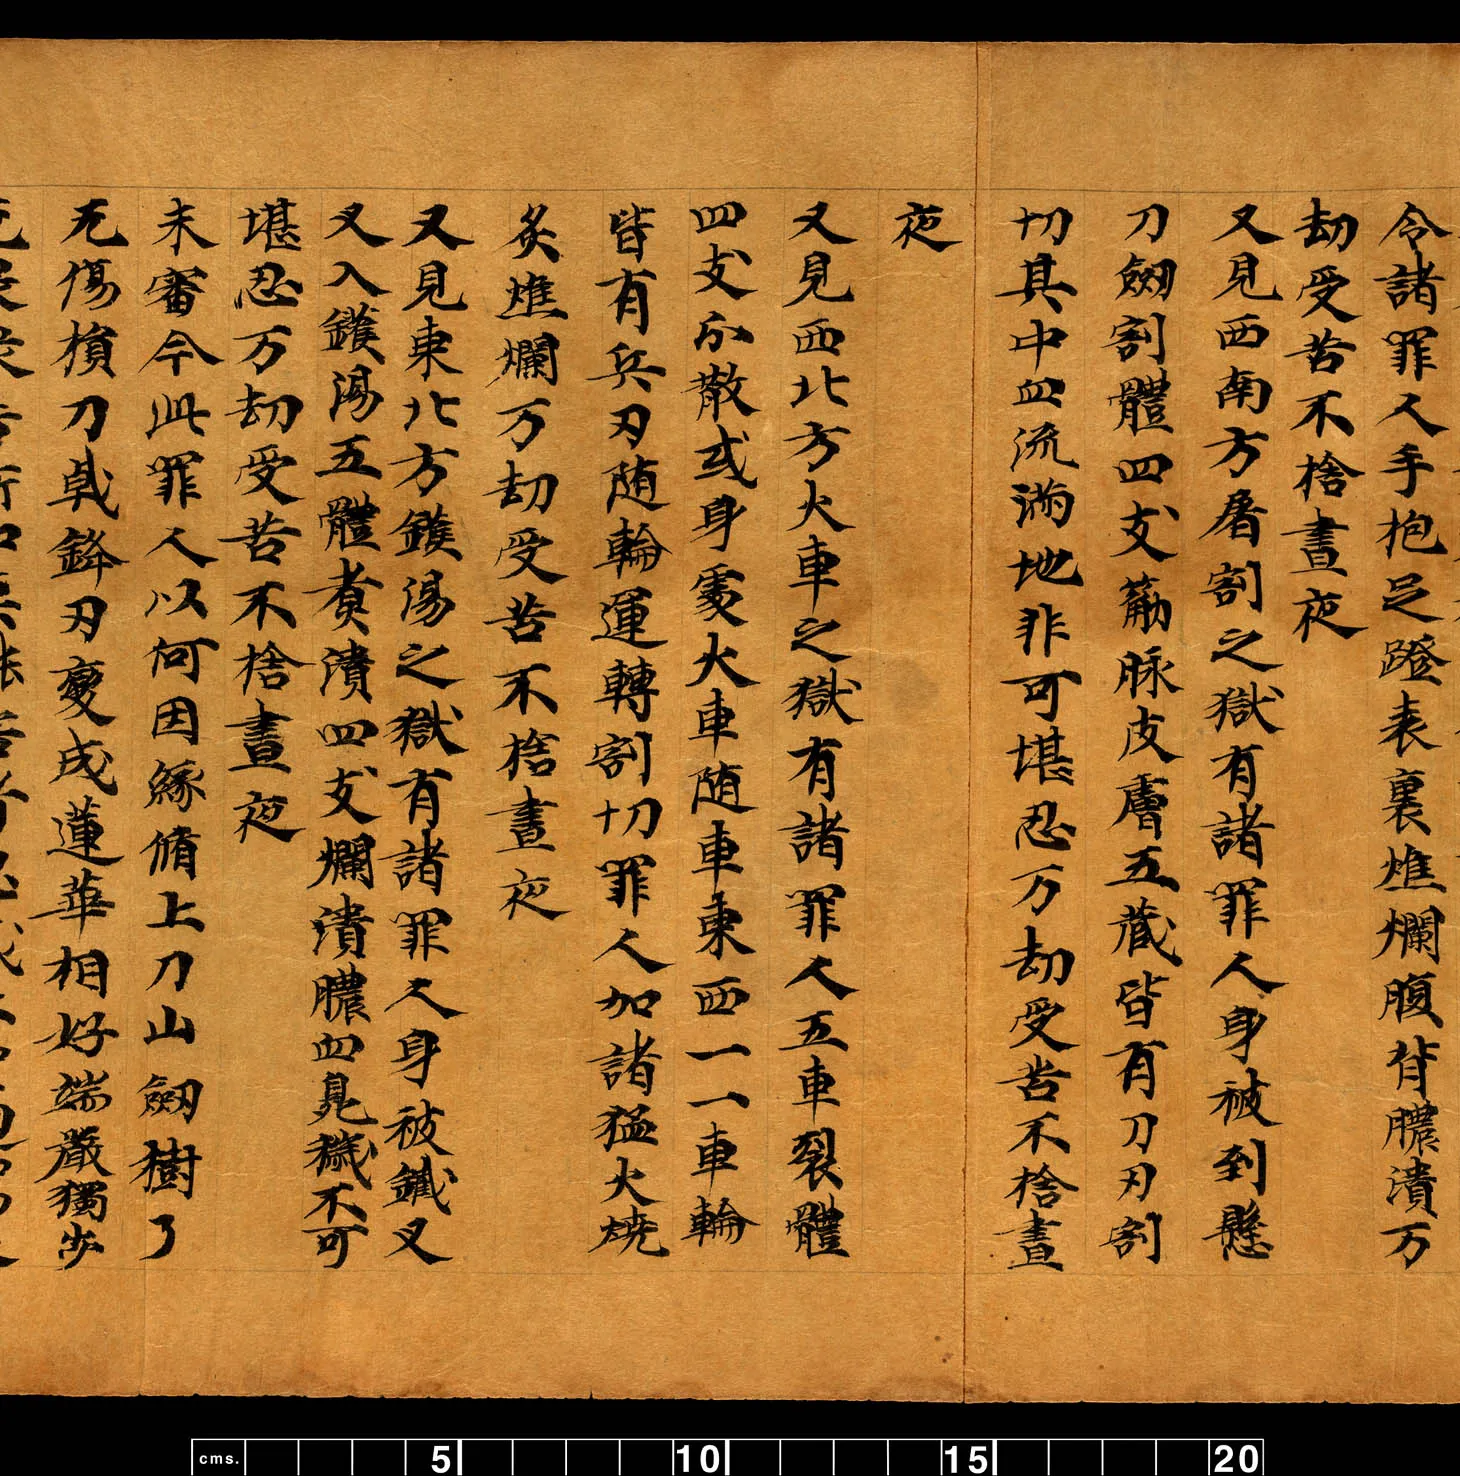 令諸罪人手抱足蹬表裏燋爛腹背膿潰万
劫受苦不捨晝夜
又見西南方屠割之獄有諸罪人身被到懸
刀劒割體四支薊脉皮膚五藏皆有刀刃割
切其中血流滿地非可堪忍万劫受苦不捨晝
夜
又見西北方火車之獄有諸罪人五車裂體
四支分散或身處火車随車東西一一車輪
皆有兵刃随輪運轉割切罪人加諸猛火燒
炙燋爛万劫受苦不捨晝夜
又見東北方鑊湯之獄有諸罪人身被鐵叉
叉入鑊湯五體煑潰四支爛潰膿血臰穢不可
堪忍万劫受苦不捨晝夜
未審今此罪人以何因緣脩上刀山劒樹了
无傷損刀戟鋒刃變成蓮華相好端嚴獨步